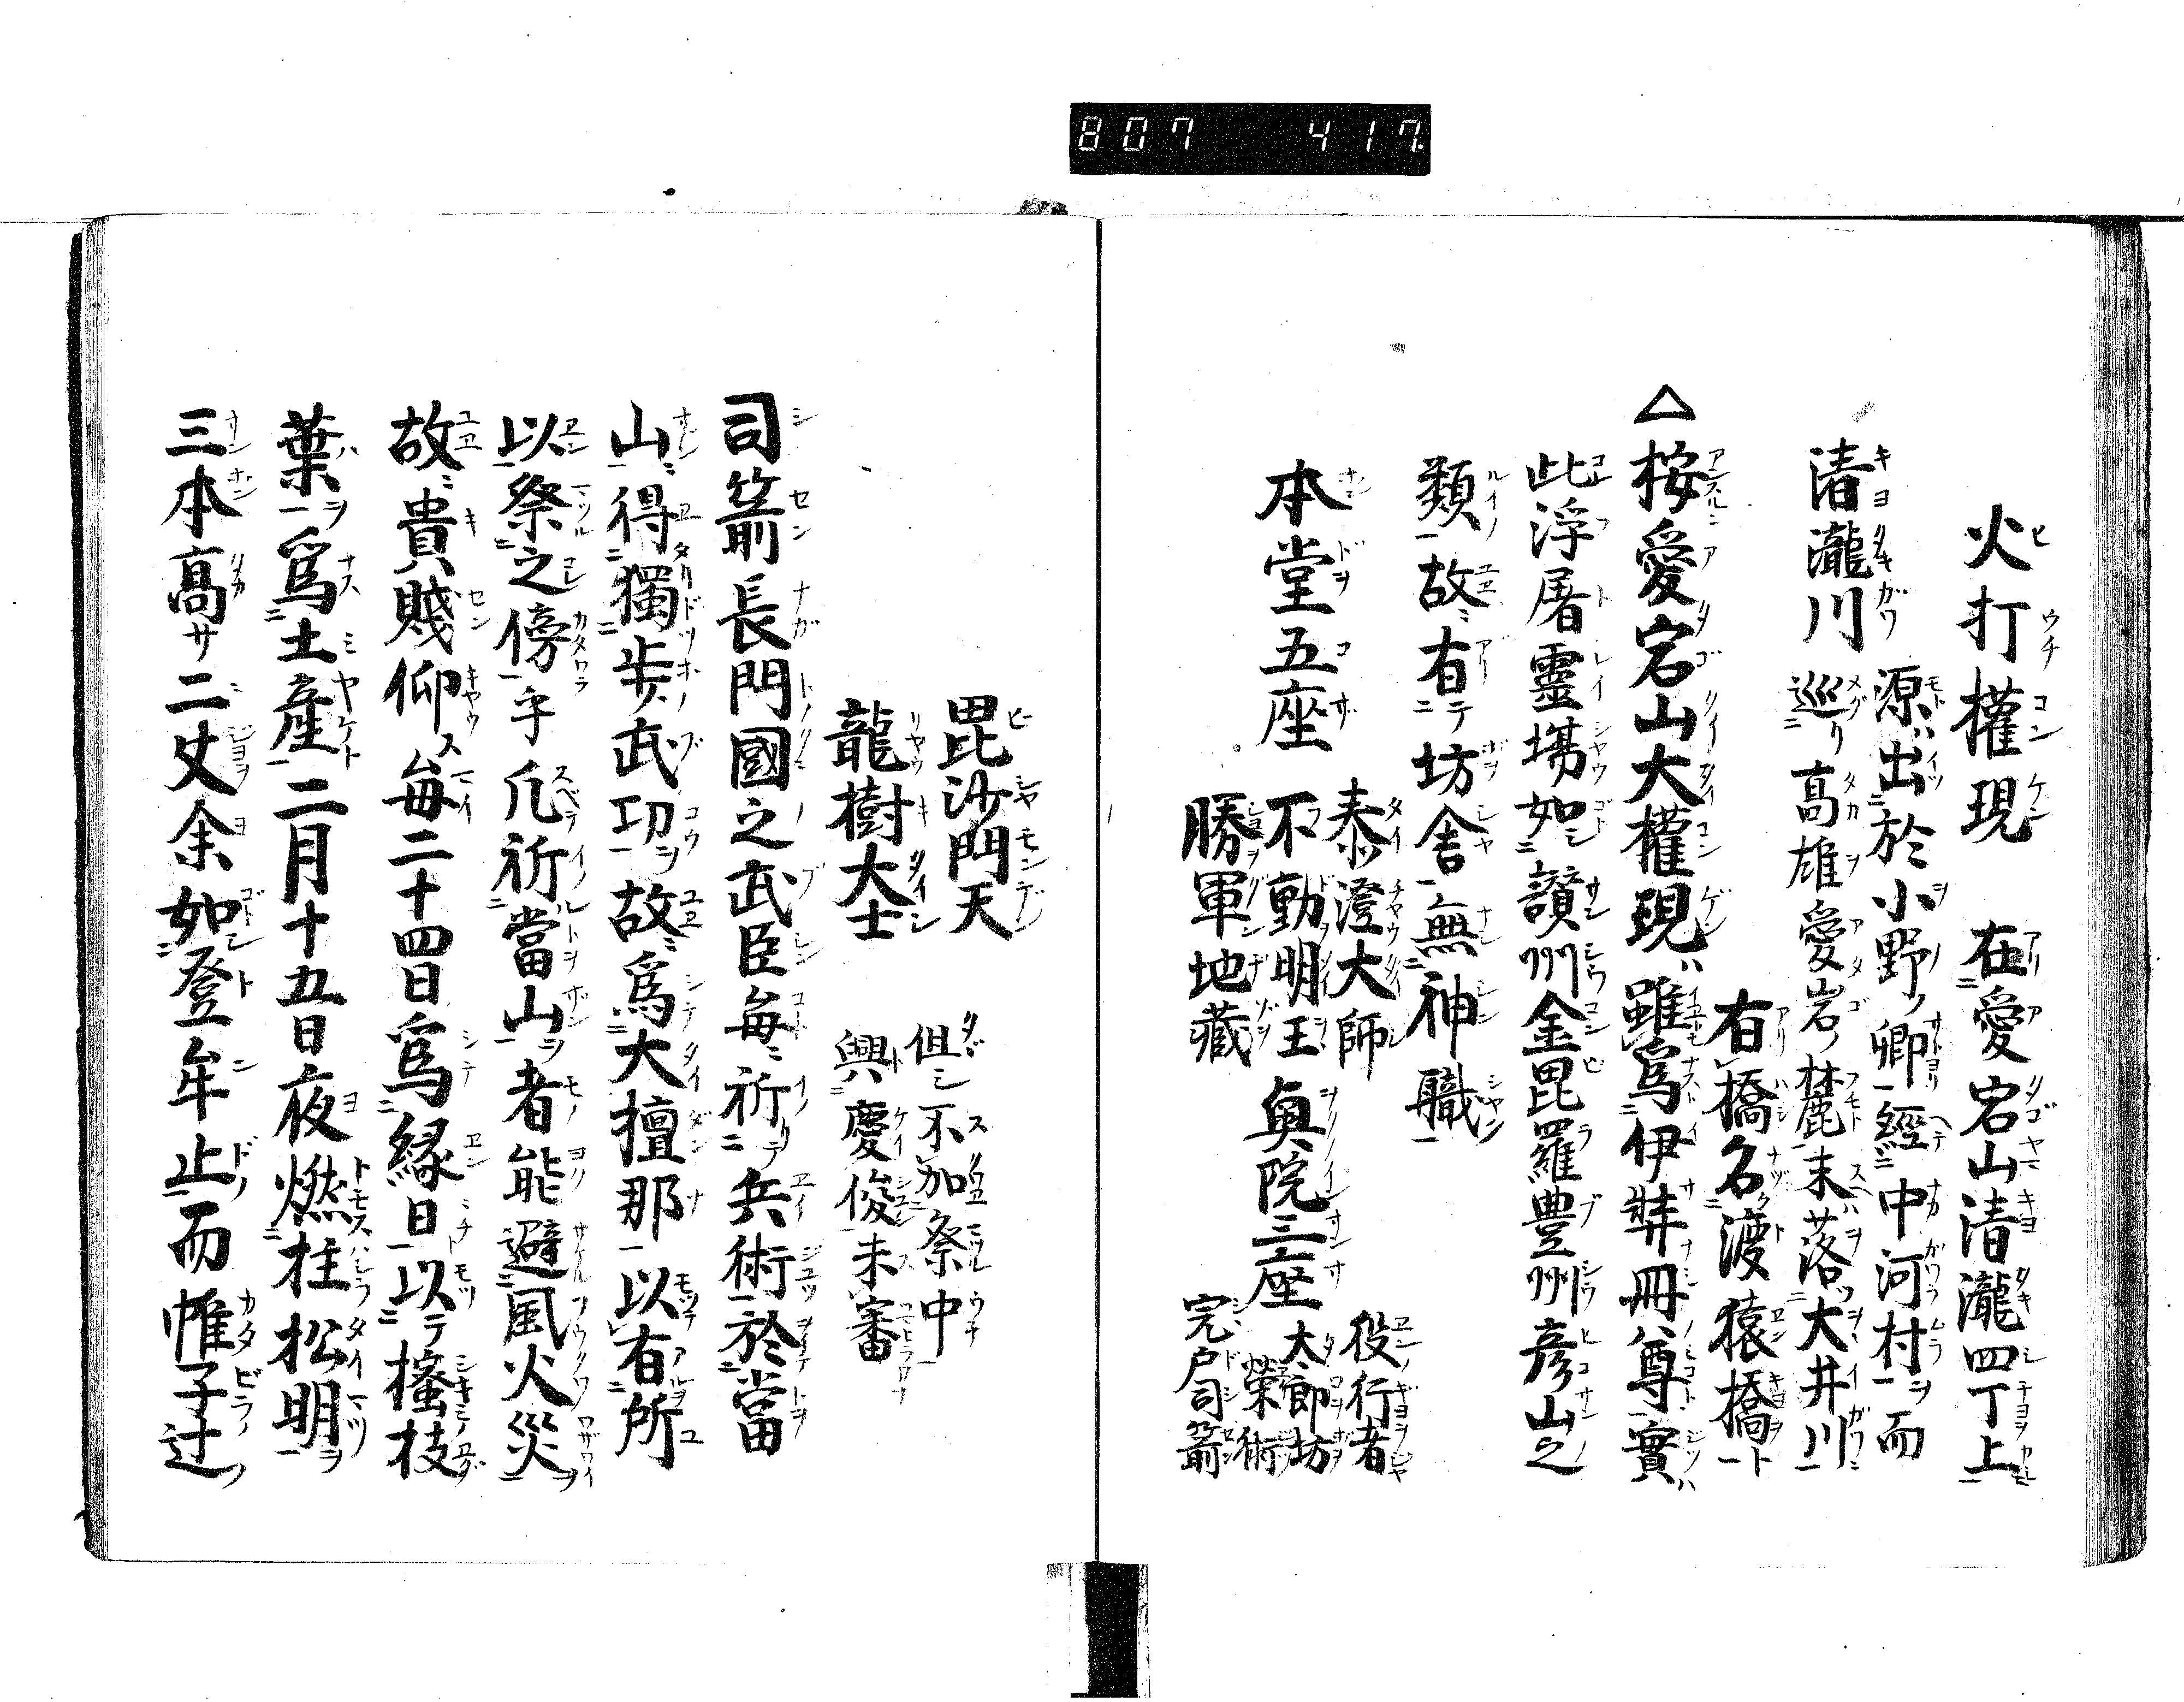 807 417.
火打權現 在愛宕山清瀧四丁上
清瀧川 源出於小野ノ鄉經中河村而
巡リ高雄愛岩麓末落大井川
有橋名渡猿橋ト
△按愛宕山大權現ハ雖爲伊弉冊尊實ハ
此浮屠靈場如讃州金毘羅豊州彦山之
類故有テ坊舎無神職
本堂五座 泰澄大師
不動明王
勝軍地藏
奥院三座 役行者
太郎坊
榮術
宍戸司箭
毘沙門天
龍樹大士
但シ不加祭中
興慶俊未審
司箭長門國之武臣毎祈兵術於當
山得獨歩武功故爲大檀那以有所
以祭之傍乎凡祈當山者能避風火災
故貴賤仰ス毎二十四日爲縁日以テ櫁枝
葉爲土産二月十五日夜燃柱松明
三本高サ二丈余如登牟止而帷子辻